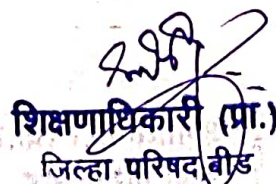 शिक्षणाधिकारी (प्रा.)
जिल्हा परिषद बीड